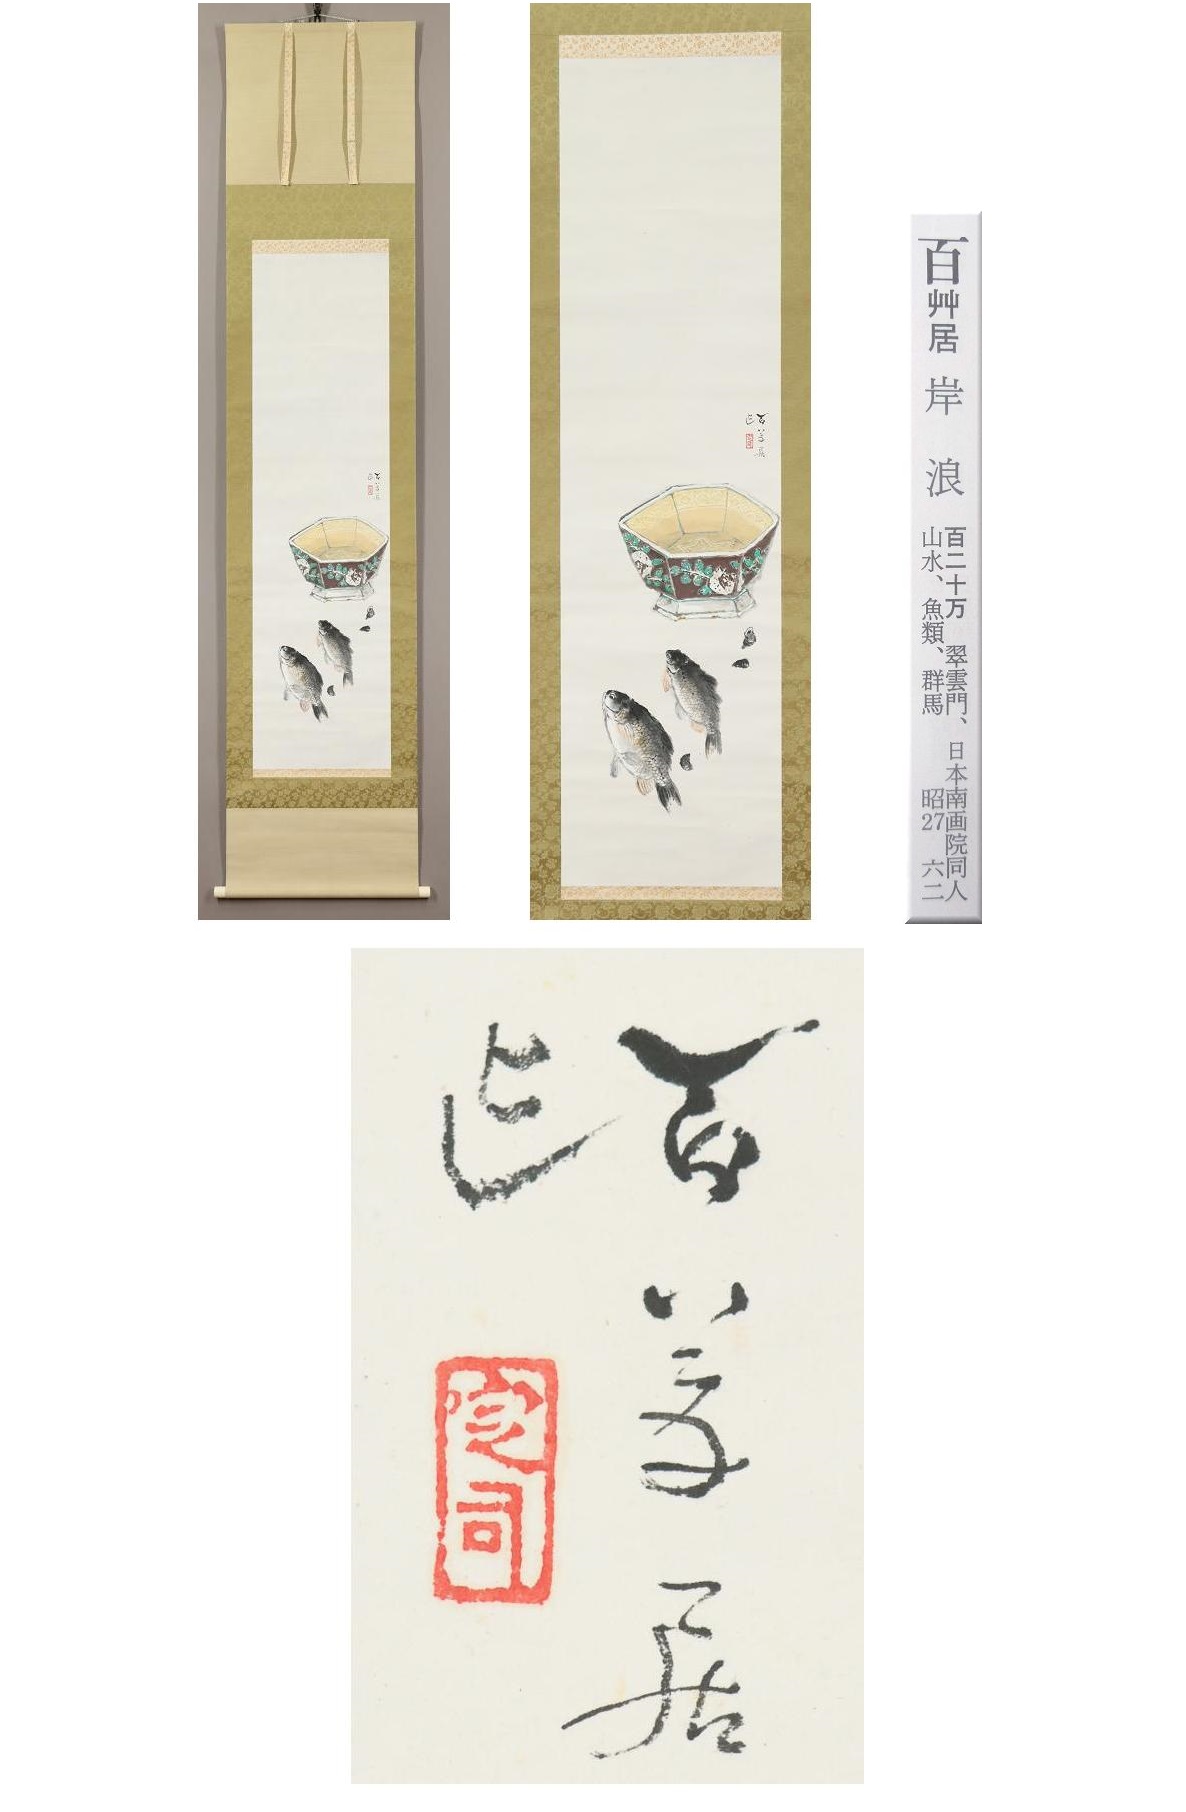 百艸居 岸 浪
百二十万 翠雲門、日本南画院同人
山水、魚類、群馬 昭27 六二
百艸居